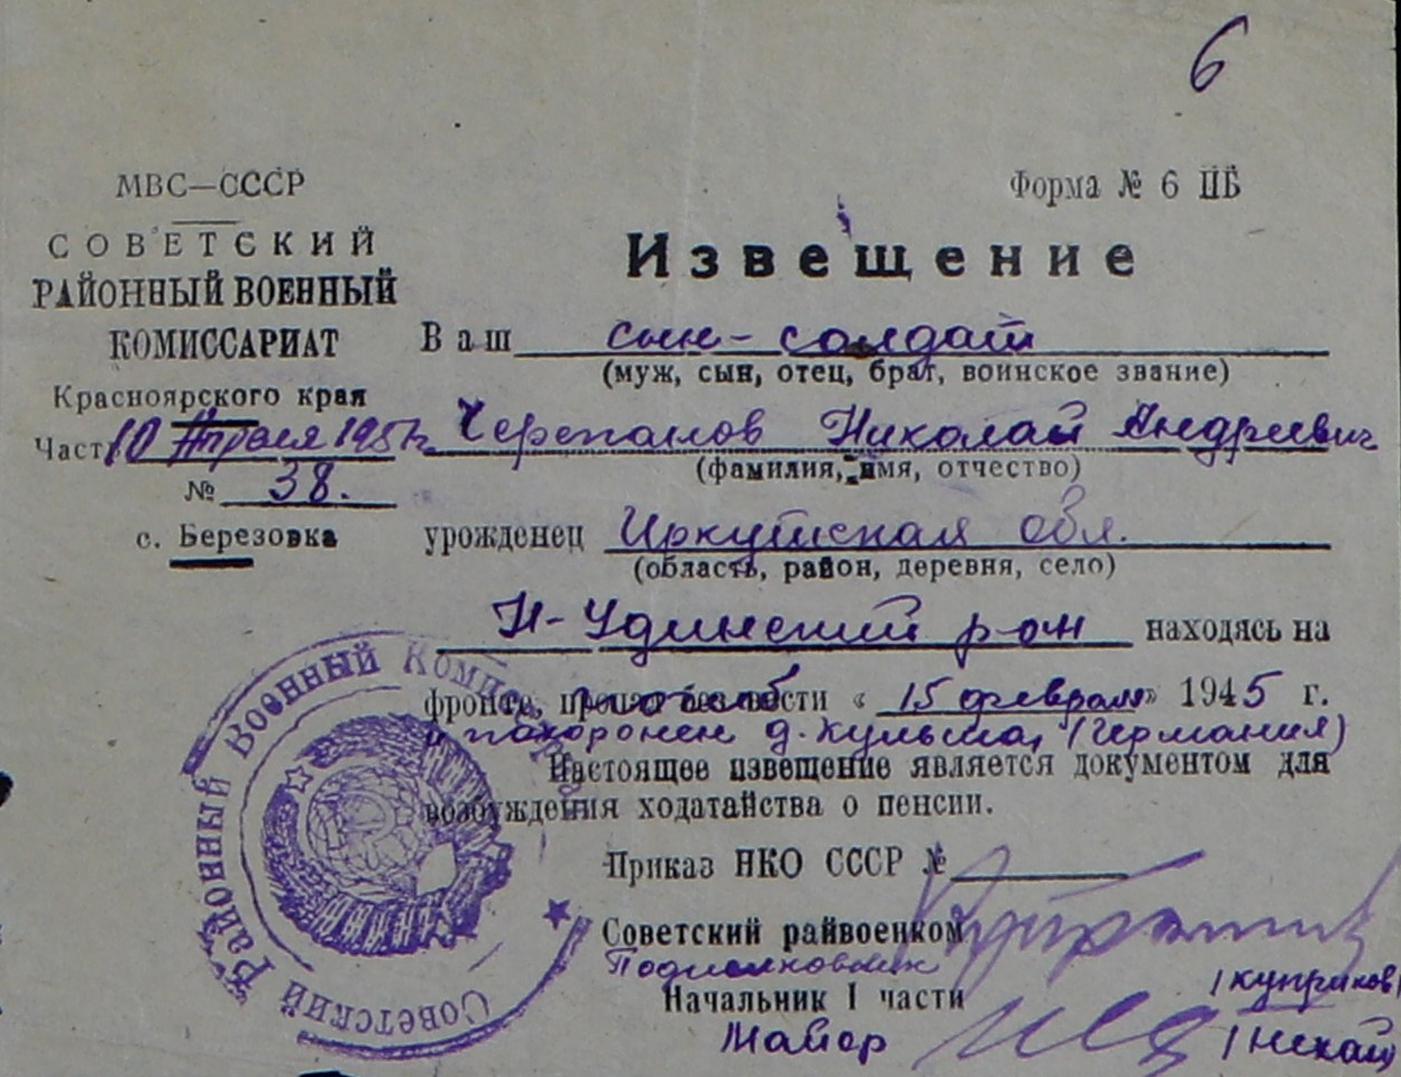 6
МВС—СССР
СОВЕТСКИЙ
РАЙОННЫЙ ВОЕННЫЙ
КОМИССАРИАТ
Красноярского края
Част 10 Апреля 195 г.
№ 38.
с. Березовка
Форма № 6 ПБ
Извещение
Ваш сын - солдат
(муж, сын, отец, брат, воинское звание)
Черепанов Николай Андреевич
(фамилия, имя, отчество)
урожденец Иркутская обл.
(область, район, деревня, село)
Н-Удинский р-он находясь на
фронте, пропал без вести погиб « 15 февраля » 1945 г.
и похоронен д. Кульма, (Германия)
Настоящее извещение является документом для
возбуждения ходатайства о пенсии.
Приказ НКО СССР №
Советский райвоенком
Подполковник
/Куприков/
Начальник I части
Майор
Советский Районный Военный Комиссариат